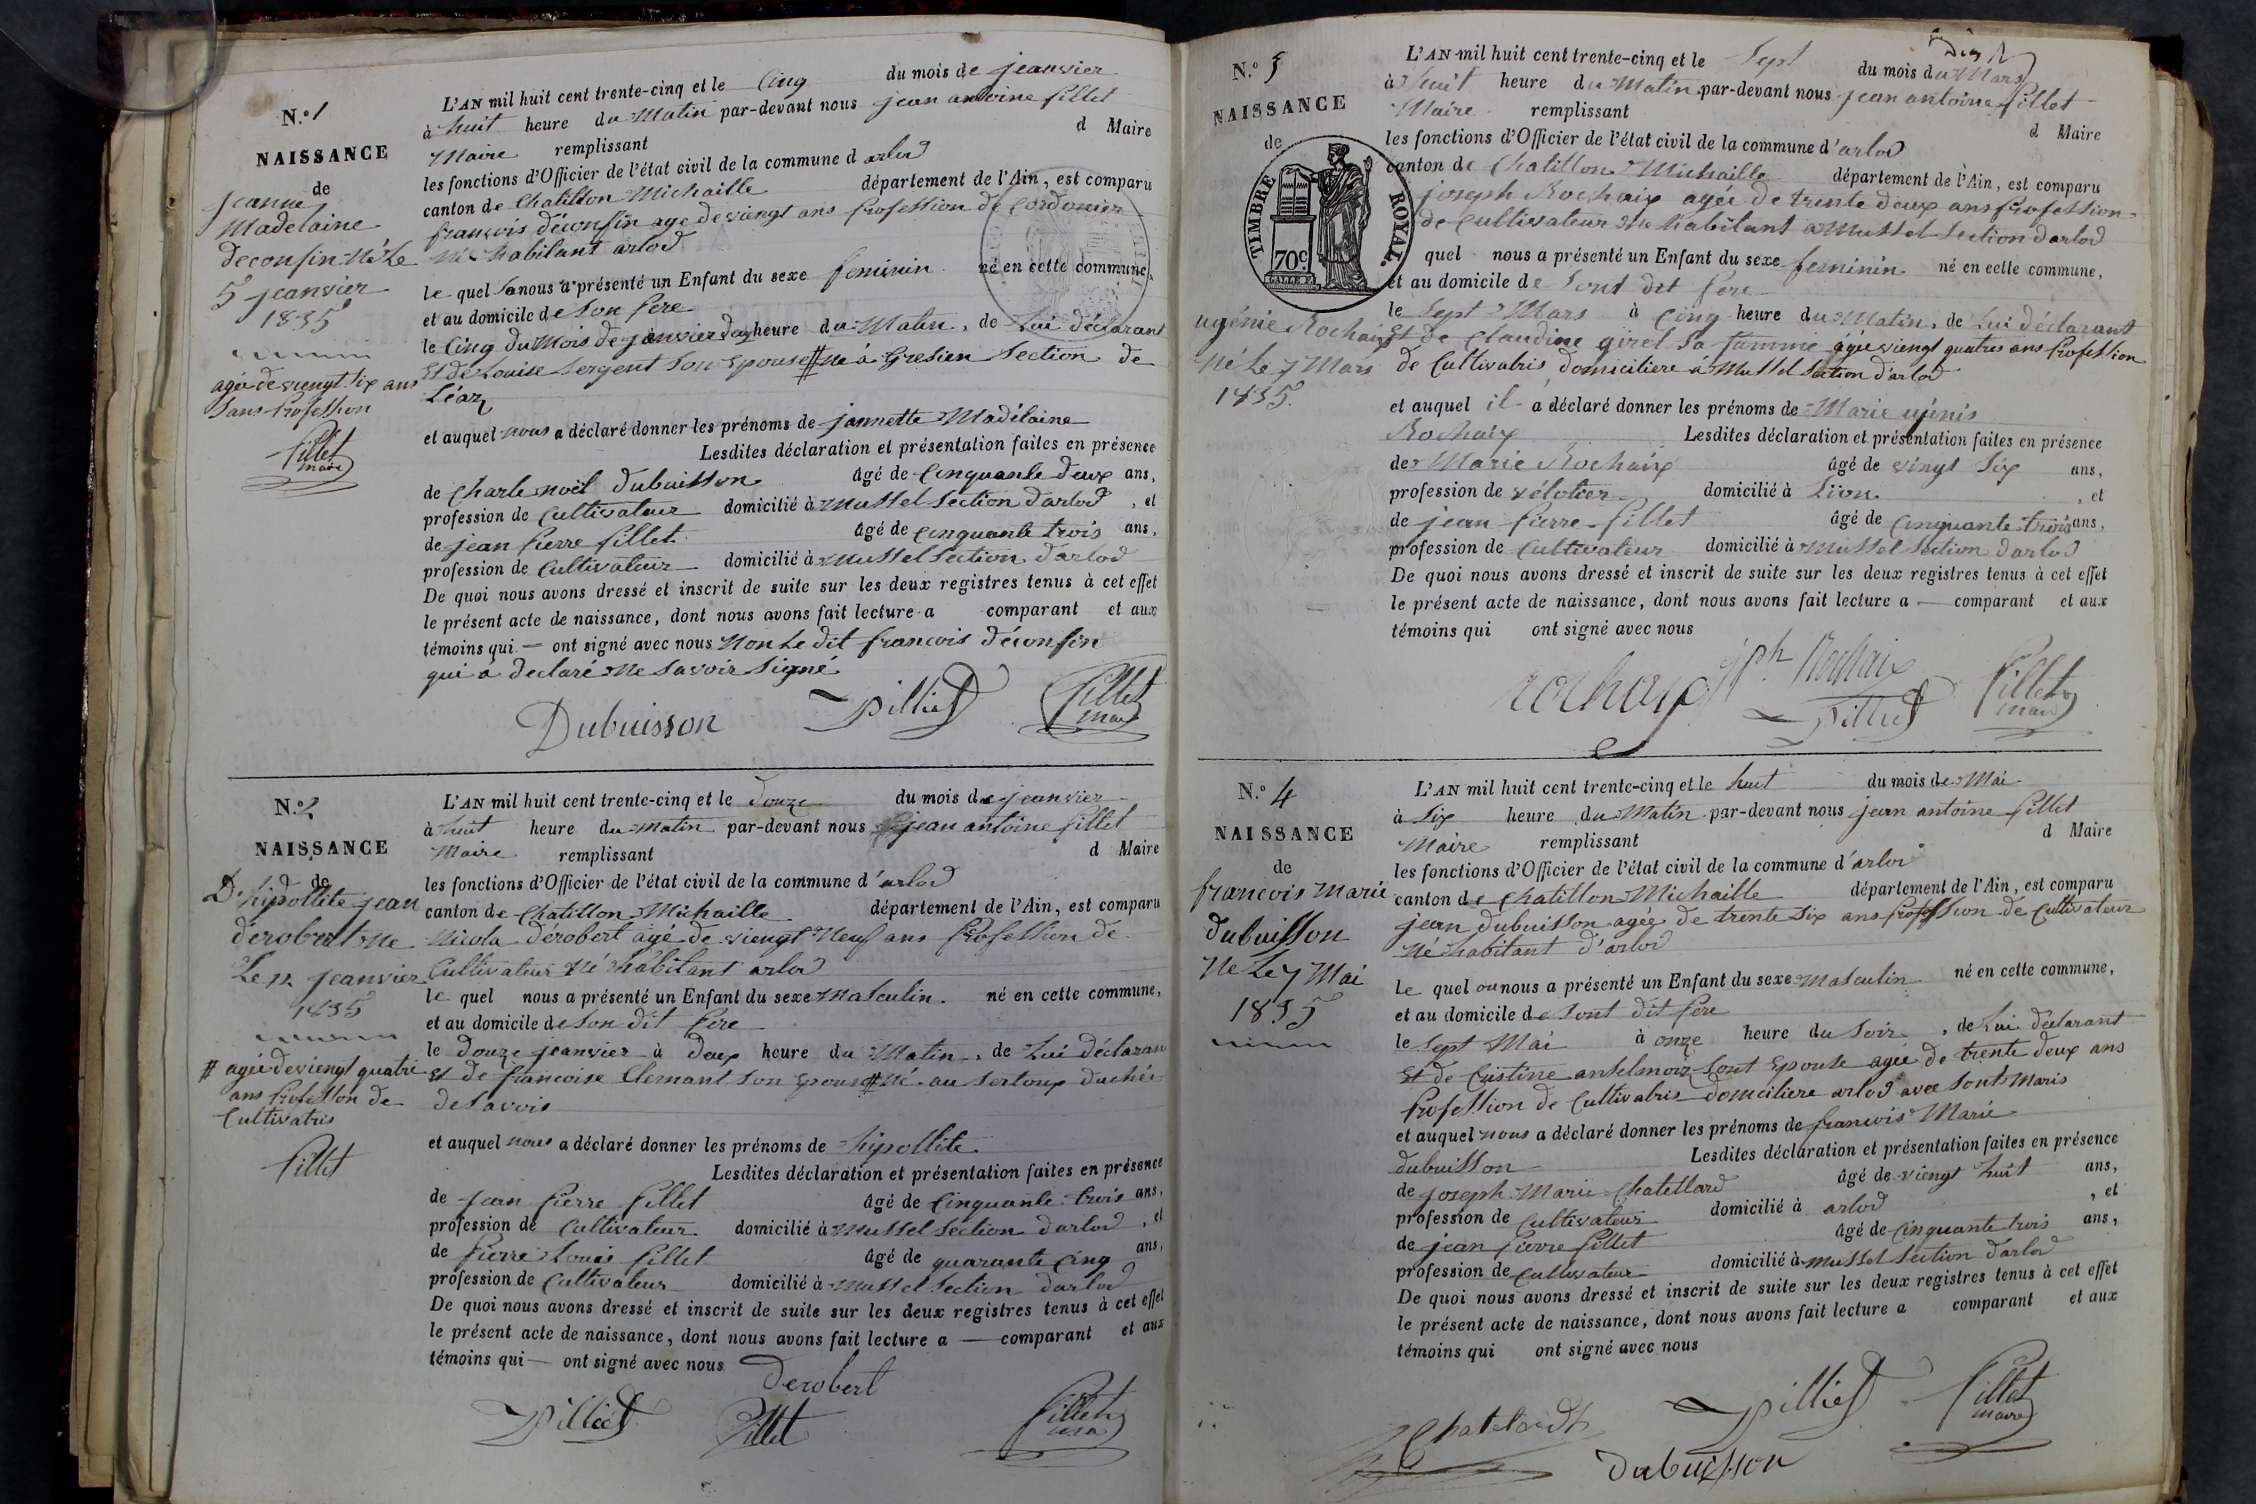 N.º 1
NAISSANCE
de
jeanne
Madelaine
deconfin Né Le
5 jeanvier
1835
agée de viengt six ans
sans Profession
Pillet
maire
L'AN mil huit cent trente-cinq et le Cinq du mois de jeanvier
à huit heure du Matin par-devant nous jean antoine Pillet
Maire remplissant d Maire
les fonctions d'Officier de l'état civil de la commune d arlod
canton de Chatillon Michaille département de l'Ain, est comparu
françois déconfin age de viengt ans Profession de Cordonier
Né habitant arlod
le quel nous a présenté un Enfant du sexe feminin né en cette commune,
et au domicile de son Père
le Cinq du Mois de janvier heure du Matin, de Lui déclarant
Et de Louise Sergent son Epouse # né à Gresien Section de
Léaz
et auquel nous a déclaré donner les prénoms de jannette Madélaine
Lesdites déclaration et présentation faites en présence
de Charle noël Dubuisson âgé de Cinquante deux ans,
profession de Cultivateur domicilié à Mussel Section d'arlod, et
de jean Pierre Pillet âgé de Cinquante trois ans,
profession de Cultivateur domicilié à Mussel Section d'arlod
De quoi nous avons dressé et inscrit de suite sur les deux registres tenus à cet effet
le présent acte de naissance, dont nous avons fait lecture a comparant et aux
témoins qui — ont signé avec nous Non Le dit francois déconfin
qui a declaré Ne savoir signé
Dubuisson Pilliet Pillet
maire
N.º 2
NAISSANCE
de
D. hipollite jean
derobert Ne
Le 12 jeanvier
1835
# agée de viengt quatre
ans Profession de
Cultivatris
Pillet
L'AN mil huit cent trente-cinq et le Douze du mois de jeanvier
à huit heure du Matin par-devant nous jean antoine Pillet
Maire remplissant d Maire
les fonctions d'Officier de l'état civil de la commune d'arlod
canton de Chatillon Michaille département de l'Ain, est comparu
Nicola dérobert agé de viengt Neuf ans Profession de
Cultivateur Né habitant arlod
le quel nous a présenté un Enfant du sexe Masculin. né en cette commune,
et au domicile de son dit Père
le douze jeanvier à Deux heure du Matin, de Lui déclaran
Et de francoise Clemant son Epouse # Né au Sertoux Duchée
de Savois
et auquel nous a déclaré donner les prénoms de hipollite
Lesdites déclaration et présentation faites en présence
de jean Pierre Pillet âgé de Cinquante trois ans,
profession de Cultivateur domicilié à Mussel Section d'arlod, et
de Pierre Louis Pillet âgé de quarante Cinq ans,
profession de Cultivateur domicilié à Mussel Section d'arlod
De quoi nous avons dressé et inscrit de suite sur les deux registres tenus à cet effet
le présent acte de naissance, dont nous avons fait lecture a — comparant et aux
témoins qui — ont signé avec nous
Derobert
Pilliet Pillet Pillet
N.º 3
NAISSANCE
de
TIMBRE ROYAL.
70c.
ugénie Rochaix
Né Le 7 Mars
1835.
L'AN mil huit cent trente-cinq et le Sept du mois du Mars
à huit heure du Matin par-devant nous jean antoine Pillet
Maire remplissant d Maire
les fonctions d'Officier de l'état civil de la commune d'arlod
canton de Chatillon Michaille département de l'Ain, est comparu
joseph Rochaix agée de trente deux ans Profession
de Cultivateur Né habitant a Mussel Section d'arlod
quel nous a présenté un Enfant du sexe feminin né en cette commune,
et au domicile de sont dit Père
le Sept Mars à Cinq heure du Matin, de Lui déclarant
Et de Claudine girel sa famme agée viengt quatres ans Profession
de Cultivatris domiciliere à Mussel Section d'arlod
et auquel il a déclaré donner les prénoms de Marie ugénis
Rochaix Lesdites déclaration et présentation faites en présence
de Marie Rochaix âgé de vingt Six ans,
profession de vélotier domicilié à Lion, et
de jean Pierre Pillet âgé de Cinquante trois ans,
profession de Cultivateur domicilié à Mussel Section d'arlod
De quoi nous avons dressé et inscrit de suite sur les deux registres tenus à cet effet
le présent acte de naissance, dont nous avons fait lecture a — comparant et aux
témoins qui ont signé avec nous
rochaix jph. Rochaix Pilliet Pillet
maire
N.º 4
NAISSANCE
de
francois Marie
dubuisson
Né Le 7 Mai
1835
L'AN mil huit cent trente-cinq et le huit du mois de Mai
à Six heure du Matin par-devant nous jean antoine Pillet
Maire remplissant d Maire
les fonctions d'Officier de l'état civil de la commune d'arlod
canton de Chatillon Michaille département de l'Ain, est comparu
jean dubuisson agée de trente Six ans Profession de Cultivateur
Né habitant d'arlod
le quel nous a présenté un Enfant du sexe Masculin né en cette commune,
et au domicile de sont dit Père
le Sept Mai à onze heure du Soir, de Lui déclarant
Et de Cristine antelmoiz sont Epouse agée de trente deux ans
Profession de Cultivatris domiciliere arlod avec sont Maris
et auquel nous a déclaré donner les prénoms de francois Marie
dubuisson Lesdites déclaration et présentation faites en présence
de joseph Marie Chatellard âgé de viengt huit ans,
profession de Cultivateur domicilié à arlod, et
de jean Pierre Pillet âgé de Cinquante trois ans,
profession de Cultivateur domicilié à Mussel Section d'arlod
De quoi nous avons dressé et inscrit de suite sur les deux registres tenus à cet effet
le présent acte de naissance, dont nous avons fait lecture a comparant et aux
témoins qui ont signé avec nous
Chatelard Pilliet Pillet
maire
dubuisson